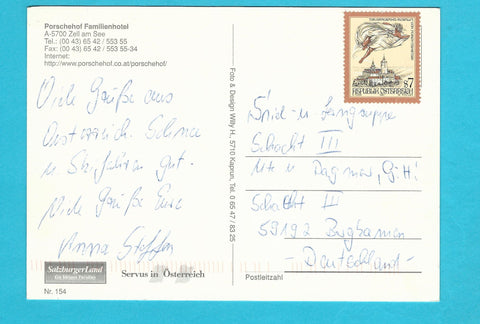 Porschehof Familienhotel
A-5700 Zell am See
Tel.: (00 43) 65 42 / 553 55
Fax: (00 43) 65 42 / 553 55-34
Internet:
http://www.porschehof.co.at/porschehof/
Viele Grüße aus
Österreich. Schnee
u. Ski fahren gut.
Viele Grüße Eure
Anna Steffen
SalzburgerLand
Servus in Österreich
Nr. 154
Foto & Design Willy H., 5710 Kaprun, Tel. 0 65 47 / 83 25
REPUBLIK ÖSTERREICH
S7
Spiel-u
Schacht III
u Dagmar,
Schacht III
59192 Bergkamen
- Deutschland -
Postleitzahl